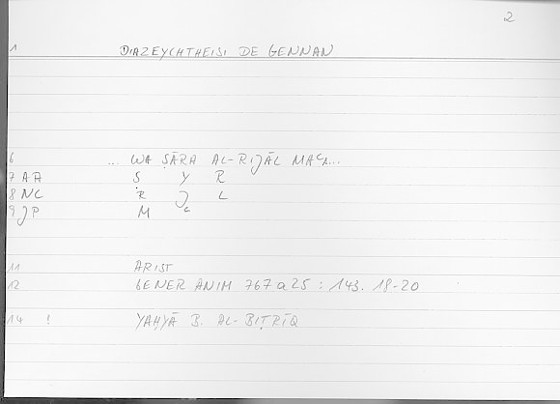 2
1 DIAZEYCHTHEISI DE GENNAN
6 .. WA ṢĀRA AL-RIJĀL MAʿA...
7 AA Ṣ Y R
8 NL R J L
9 JP M ʿ
11 ARIST
12 GENER ANIM 767a25 : 143.18-20
14 ! YAḤYĀ B. AL-BIṬRĪQ